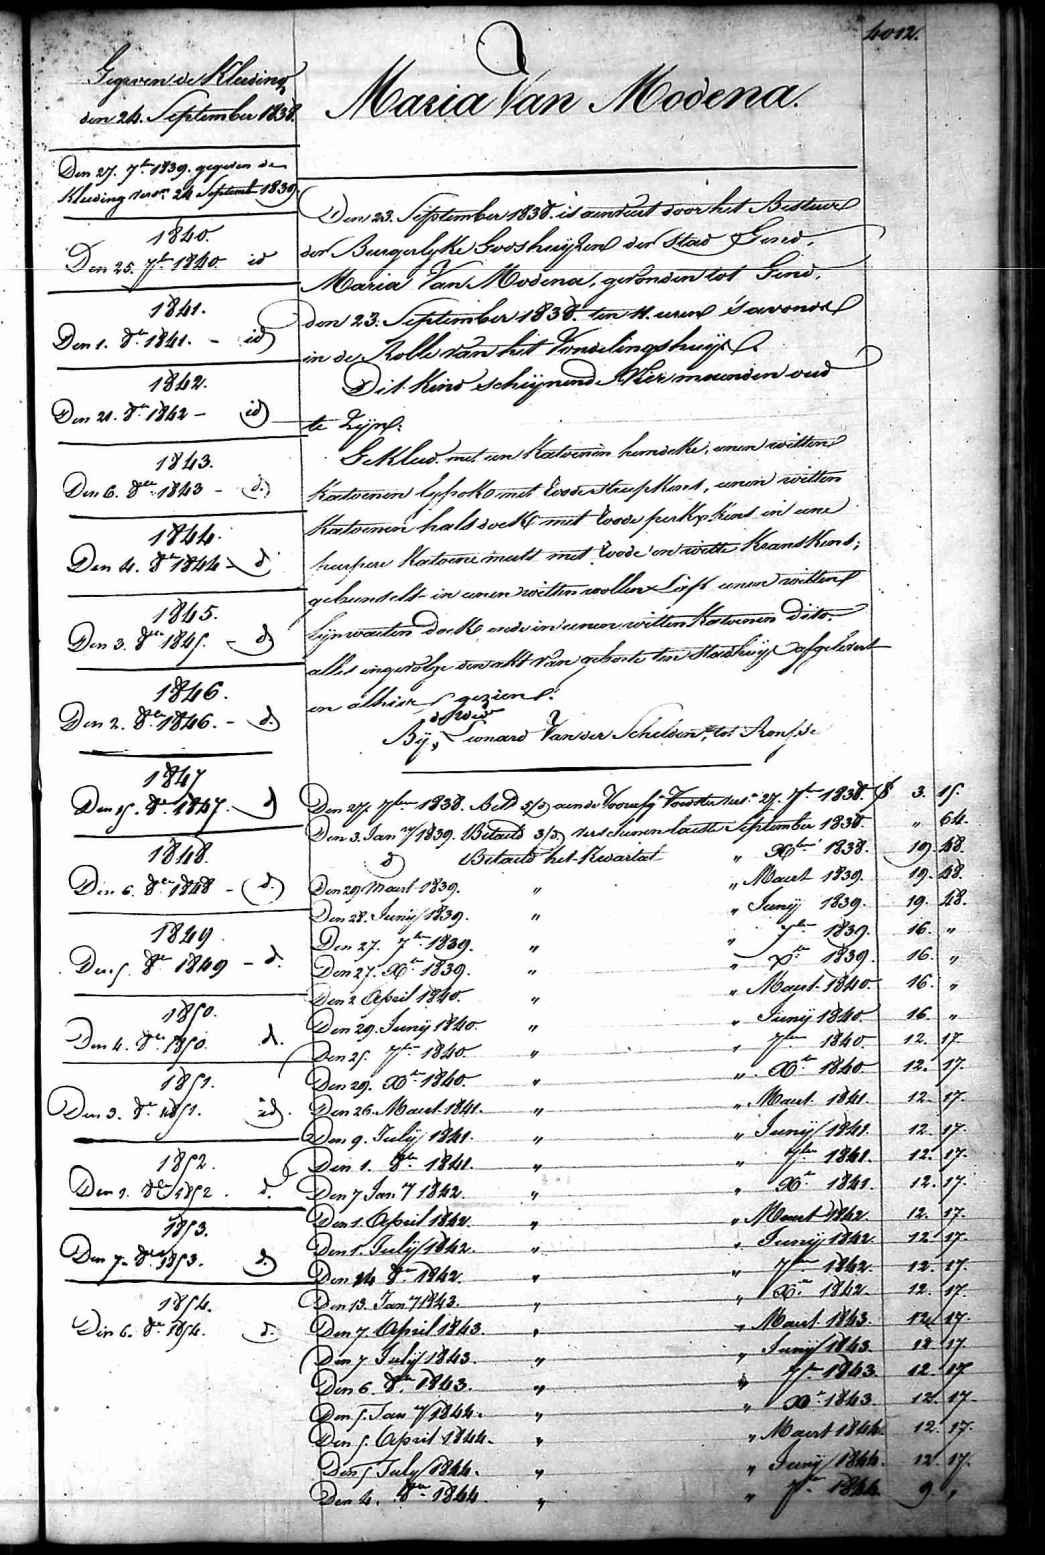 4012.
Gegeven de Kleeding
den 24. September 1838.
Den 27. 7br 1839. gegeven de
Kleeding vers. 24 Septemb 1839.
1840.
Den 25. 7br 1840. id
1841.
Den 1. 8br 1841. - id
1842.
Den 21. 8br 1842 - id
1843.
Den 6. 8ber 1843 - d.
1844.
Den 4. 8br 1844 - d
1845.
Den 3. 8ber 1845. - d
1846.
Den 2. 8br 1846. - d.
1847
Den 15. 8br 1847. d
1848.
Den 6. 8ber 1848 - d.
1849.
Den 5. 8br 1849 - d.
1850.
Den 4. 8br 1850. d.
1851.
Den 3. 8br 1851. id.
1852.
Den 8br 1852. d.
1853.
Den 7. 8ber 1853. d.
1854.
Den 6. 8br 1854. d.
Maria Van Modena.
Den 23. September 1838. is aenveert door het Bestuer
der Burgerlyke Godshuyzen der Stad Gend.
Maria Van Modena, gevonden tot Gend,
den 23. September 1838. ten 11. uren s'avonds
in de Rolle van het Vondelingshuys.
Dit Kind schynende Vier maenden oud
te zyn.
Gekleed met een Katoenen hemdeke, eenen witten
Katoenen met roode streepkens, eenen witten
Katoenen halsdoek met roode perkskens in eene
peerpere Katoene muts met roode en witte Kranskens,
gebundelt in eenen witten wollen eenen witten
Lynwaeten doek ende in eenen witten Katoenen dito.
alles ingevolge den akt van geboorte ten Stadhuyse afgelevert
en alhier gezien.
By Leonard Van der Schelden, tot Ronsse
Den 27. 7ber 1838. Aen de 27. 7br 1838. 3. 15.
Den 3. Jan.y 1839. Betaeld verschenen laeste September 1838. " 64.
d Betaeld het Kwartael " Xber 1838. 19. 48.
Den 29 Maert 1839. " " Maert 1839. 19. 48.
Den 28. Junij 1839. " " Junij 1839. 19. 48.
Den 27. 7br 1839. " " 7ber 1839. 16. "
Den 27. Xbr 1839. " " Xbr 1839. 16. "
Den 2 April 1840. " " Maert 1840. 16. "
Den 29. Junij 1840. " " Junij 1840. 16. "
Den 25. 7ber 1840. " " 7ber 1840. 12. 17.
Den 29. Xbr 1840. " " Xbr 1840. 12. 17.
Den 26. Maert 1841. " " Maert. 1841. 12. 17.
Den 9. Julij 1841. " " Junij 1841. 12. 17.
Den 1. 8ber 1841. " " 7ber 1841. 12. 17.
Den 7 Jan.y 1842. " " Xbr 1841. 12. 17.
Den 1. April 1842. " " Maert 1842. 12. 17.
Den 1. Julij 1842. " " Junij 1842. 12. 17.
Den 14 8br 1842. " " 7ber 1842. 12. 17.
Den 13. Jan.y 1843. " " Xbr 1842. 12. 17.
Den 7. April 1843. " " Maert 1843. 12. 17.
Den 7 Julij 1843. " " Junij 1843. 12 17.
Den 6 8br 1843. " " 7br 1843. 12. 17
Den 5. Jan.y 1844. " " Xbr 1843. 12. 17.
Den 5. April 1844. " " Maert 1844. 12. 17.
Den 5 July 1844. " " Junij 1844. 12. 17.
Den 4. 8ber 1844. " " 7br 1844. 9 "